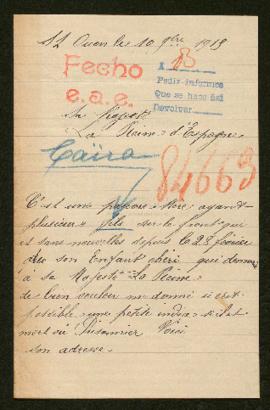 St Ouen le 10 9bre 1915
Fecho
e.a.e.
A B
Pedir informes
Que se hace así
Devolver
Sa Majesté
La Reine d'Espagne
84663
C'est une pauvre Mère ayant
plusieurs fils sur le front que
est sans nouvelles depuis le 28 février
de son Enfant chéri qui
à sa Majesté La Reine
de bien vouloir me donné si c'est
possible une petite s'il est
mort ou Prisonnier Voici
son adresse